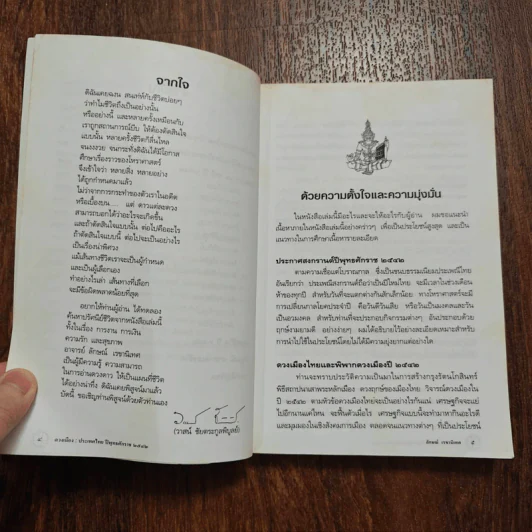 จากใจ
ดิฉันเคยฉงน สนเท่ห์กับชีวิตบ่อยๆ
ว่าทำไมชีวิตถึงเป็นอย่างนั้น
หรืออย่างนี้ และหลายครั้งเหมือนกับ
เราถูกสถานการณ์บีบ ให้ต้องตัดสินใจ
แบบนั้น หลายครั้งชีวิตก็ลื่นไหล
จนงงงวย จนกระทั่งดิฉันได้มีโอกาส
ศึกษาเรื่องราวของโหราศาสตร์
จึงเข้าใจว่า หลายสิ่ง หลายอย่าง
ได้ถูกกำหนดมาแล้ว
ไม่ว่าจากการกระทำของตัวเราในอดีต
หรือเบื้องบน.... แต่ ดาวแต่ละดวง
สามารถบอกได้ว่าอะไรจะเกิดขึ้น
และถ้าตัดสินใจแบบนั้น ต่อไปคืออะไร
ถ้าตัดสินใจแบบนี้ ต่อไปจะเป็นอย่างไร
เป็นเรื่องน่าพิศวง
แม้เส้นทางชีวิตเราจะเป็นผู้กำหนด
และเป็นผู้เลือกเอง
ทำอย่างไรเล่า เส้นทางที่เลือก
จะมีข้อผิดพลาดน้อยที่สุด
อยากให้ท่านผู้อ่าน ได้ทดลอง
ค้นหาปริศนาชีวิตจากหนังสือเล่มนี้
ทั้งในเรื่อง การงาน การเงิน
ความรัก และสุขภาพ
อาจารย์ ลักษณ์ เรขานิเทศ
เป็นผู้มีความรู้ ความสามารถ
ในการอ่านดวงดาว ให้เป็นแผนที่ชีวิต
ได้อย่างน่าทึ่ง ดิฉันเคยพิสูจน์มาแล้ว
บัดนี้ ขอเชิญท่านพิสูจน์ด้วยตัวท่านเอง
(วาสน์ ชัยตระกูลพิบูลย์)
๘ ดวงเมือง : ประเทศไทย ปีพุทธศักราช ๒๕๔๒
ด้วยความตั้งใจและความมุ่งมั่น
ในหนังสือเล่มนี้มีอะไรและจะให้อะไรกับผู้อ่าน ผมขอแนะนำ
เนื้อหาภายในหนังสือเล่มนี้อย่างคร่าวๆ เพื่อเป็นประโยชน์สูงสุด และเป็น
แนวทางในการศึกษาเนื้อหารายละเอียด
ประกาศสงกรานต์ปีพุทธศักราช ๒๕๔๒
ตามความเชื่อแต่โบราณกาล ซึ่งเป็นขนบธรรมเนียมประเพณีไทย
อันเรียกว่า ประเพณีสงกรานต์ถือว่าเป็นปีใหม่ไทย จะมีเวลาในช่วงเดือน
ห้าของทุกปี สำหรับวันที่จะแตกต่างกันสักเล็กน้อย ทางโหราศาสตร์จะมี
การเปลี่ยนกาลโยคประจำปี คือวันดีหรือวันธงชัย วันเป็นมงคลและวัน
เป็นอวมงคล สำหรับท่านที่จะประกอบกิจกรรมต่างๆ อันประกอบด้วย
ฤกษ์งามยามดี อย่างง่ายๆ ผมได้อธิบายไว้อย่างละเอียดเหมาะสำหรับ
การนำไปใช้ในประโยชน์โดยไม่ได้มีความยุ่งยากแต่อย่างใด
ดวงเมืองไทยและพิพากดวงเมืองปี ๒๕๔๒
ท่านจะทราบประวัติความเป็นมาในการสร้างกรุงรัตนโกสินทร์
พิธีสถาปนาเสาพระหลักเมือง ดวงฤกษ์ของเมืองไทย วิจารณ์ดวงเมืองใน
ปี ๒๕๔๒ ตามหัวข้อดวงเมืองไทยจะเป็นอย่างไรกันแน่ เศรษฐกิจจะแย่
ไปอีกนานแค่ไหน จะฟื้นตัวเมื่อไร เศรษฐกิจแบบนี้จะทำมาหากินอะไรดี
และมุมมองในเชิงสังคมการเมือง ตลอดจนแนวทางต่างๆ ที่เป็นประโยชน์
ลักษณ์ เรขานิเทศ ๕